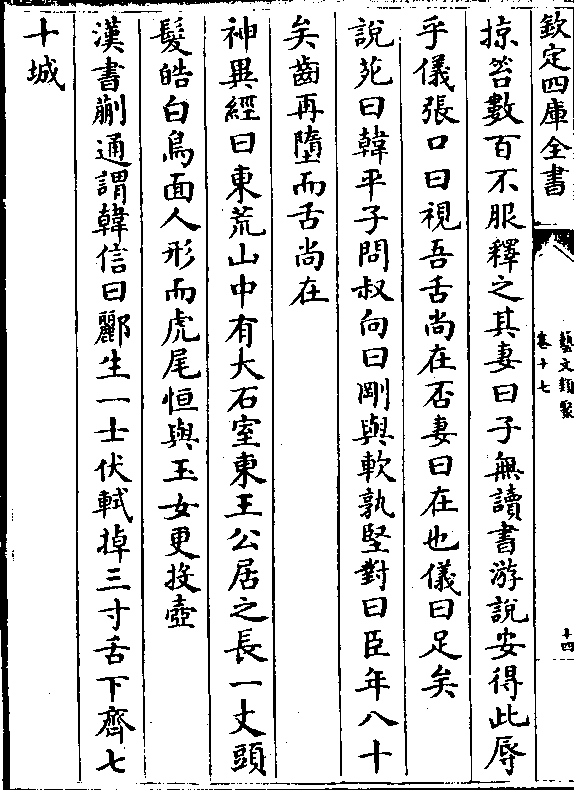 欽定四庫全書
藝文類聚
卷十七
十四
掠笞數百不服釋之其妻曰子無讀書游說安得此辱
乎儀張口曰視吾舌尚在否妻曰在也儀曰足矣
說苑曰韓平子問叔向曰剛與軟孰堅對曰臣年八十
矣齒再墮而舌尚在
神異經曰東荒山中有大石室東王公居之長一丈頭
髮皓白鳥面人形而虎尾恒與玉女更投壺
漢書蒯通謂韓信曰酈生一士伏軾掉三寸舌下齊七
十城